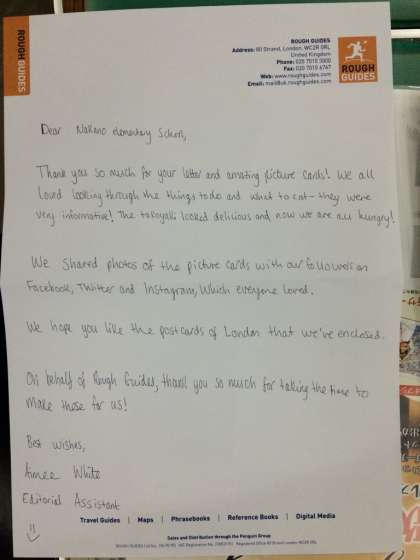 ROUGH GUIDES
ROUGH GUIDES
Address: 80 Strand, London, WC2R 0RL
United Kingdom
Phone: 020 7010 3000
Fax: 020 7010 6767
Web: www.roughguides.com
Email: mail@uk.roughguides.com
ROUGH
GUIDES
Dear Nakano elementary School,
Thank you so much for your letter and amazing picture cards! We all
loved looking through the things to do and what to eat - they were
very informative! The takoyaki looked delicious and now we are all hungry!
We shared photos of the picture cards with our followers on
Facebook, Twitter and Instagram, which everyone loved.
We hope you like the postcards of London that we've enclosed.
On behalf of Rough Guides, thank you so much for taking the time to
make these for us!
Best wishes,
Aimee White
Editorial Assistant
Travel Guides | Maps | Phrasebooks | Reference Books | Digital Media
Sales and Distribution through the Penguin Group